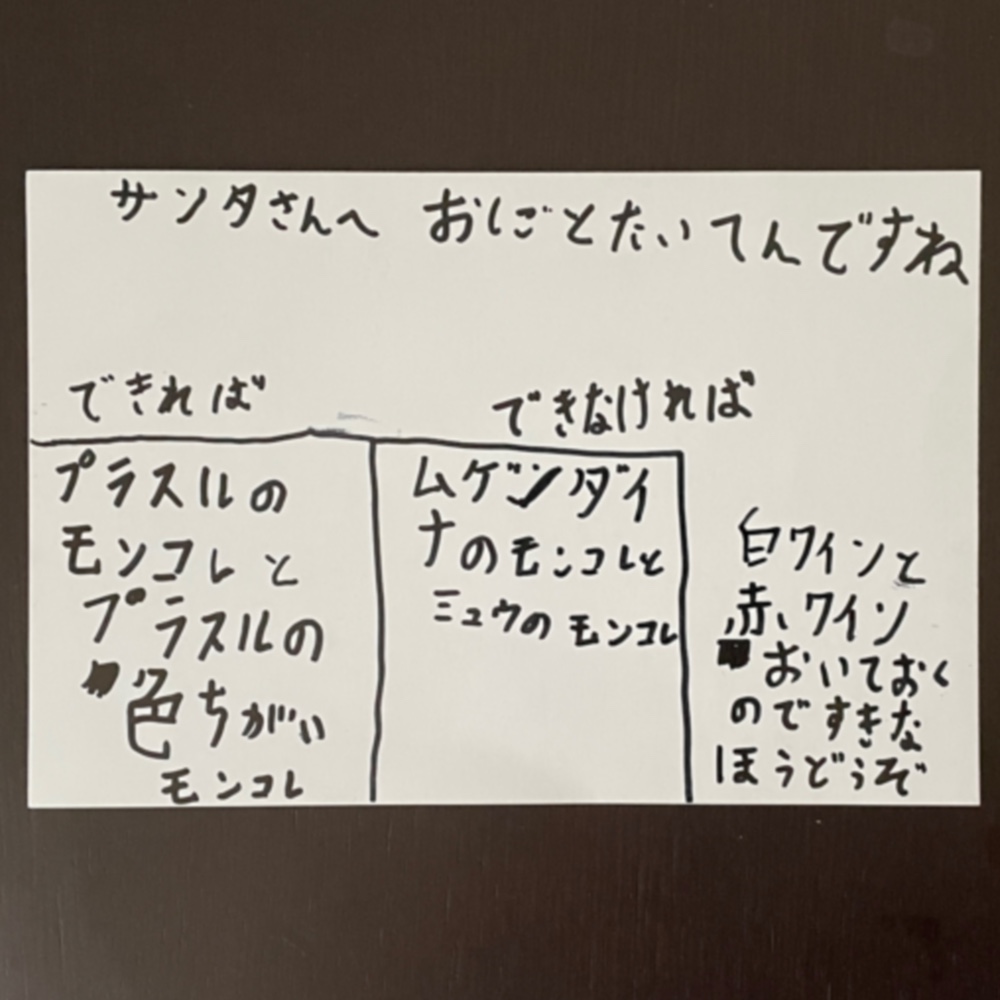 サンタさんへ おしごとたいてんですね
できれば
プラスルの
モンコレと
プラスルの
色ちがい
モンコレ
できなければ
ムゲンダイ
ナのモンコレと
ミュウのモンコレ
白ワインと
赤いワイン
おいておく
のですきな
ほうどうぞ